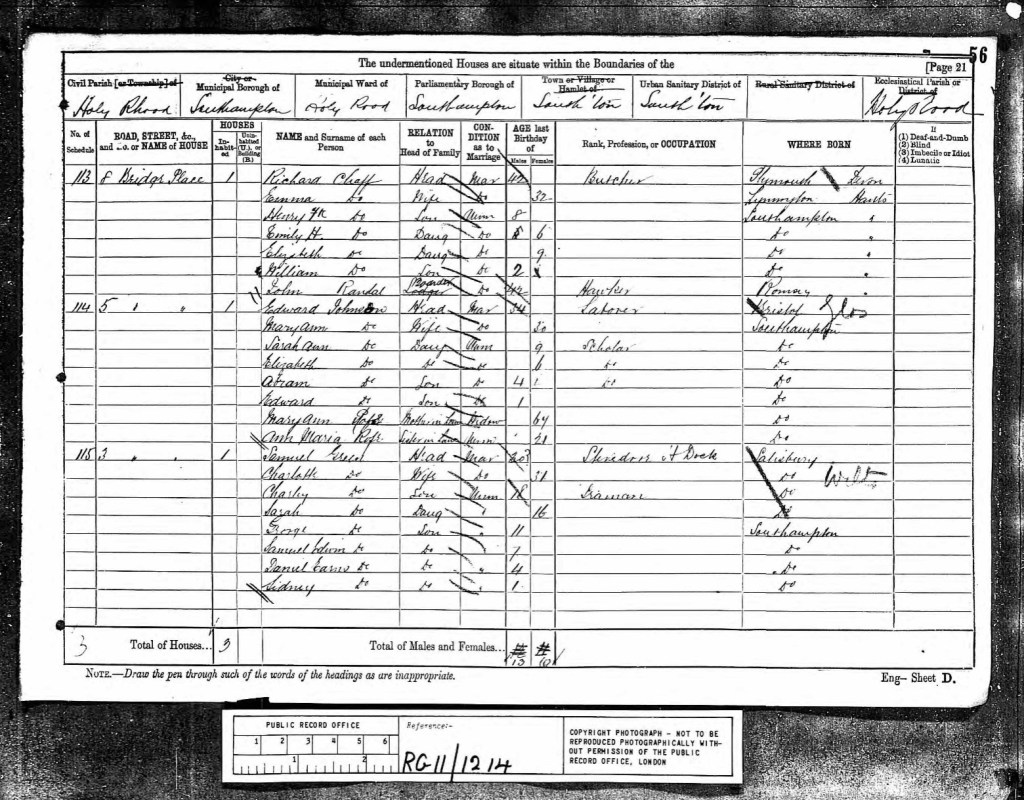 56
The undermentioned Houses are situate within the Boundaries of the
[Page 21
Civil Parish [or Township] of
City or Municipal Borough of
Municipal Ward of
Parliamentary Borough of
Town or Village or Hamlet of
Urban Sanitary District of
Rural Sanitary District of
Ecclesiastical Parish or District of
Holy Rhood Southampton Holy Rood Southampton South'ton South'ton Holy Rood
No. of Schedule
ROAD, STREET, &c., and No. or NAME of HOUSE
HOUSES
Inhabited
Uninhabited (U.), or Building (B.)
NAME and Surname of each Person
RELATION to Head of Family
CONDITION as to Marriage
AGE last Birthday of
Males Females
Rank, Profession, or OCCUPATION
WHERE BORN
If
(1) Deaf-and-Dumb
(2) Blind
(3) Imbecile or Idiot
(4) Lunatic
113 8 Bridge Place 1 Richard Chaff Head Mar 42 Butcher Plymouth Devon
Emma Do Wife Do 32 Lymington Hants
Henry Do Son Unm 8 Southampton "
Emily H. Do Daug Do 6 Do "
Elizabeth Do Daug Do 9 Do "
William Do Son Do 2 Do "
John Randal Boarder Lodger Do 42 Hawker Romsey "
114 5 " " 1 Edward Johnson Head Mar 34 Labourer Bristol Glos
Mary Ann Do Wife Do 30 Southampton
Sarah Ann Do Daug Unm 9 Scholar Do
Elizabeth Do Do Do 6 Do Do
Abram Do Son Do 4 Do Do
Edward Do Son Do 1 Do
Mary Ann Mother in Law Widow 64 Do
Ann Maria Sister in Law Unm 21 Do
115 3 " " 1 Samuel Green Head Mar Dock Salisbury
Charlotte Do Wife Do Do Wilts
Charley Do Son Unm 18 Do
Sarah Do Daug " 16 Do
George Do Son " 11 Southampton
Samuel Edwin Do Do " 7 Do
Daniel Do Do " 4 Do
Sidney Do Do " 1 Do
3 Total of Houses... 3 Total of Males and Females... 13 10
NOTE.—Draw the pen through such of the words of the headings as are inappropriate.
Eng– Sheet D.
PUBLIC RECORD OFFICE
1 2 3 4 5 6
1 2
Reference:-
RG 11/1214
COPYRIGHT PHOTOGRAPH - NOT TO BE
REPRODUCED PHOTOGRAPHICALLY WITH-
OUT PERMISSION OF THE PUBLIC
RECORD OFFICE, LONDON